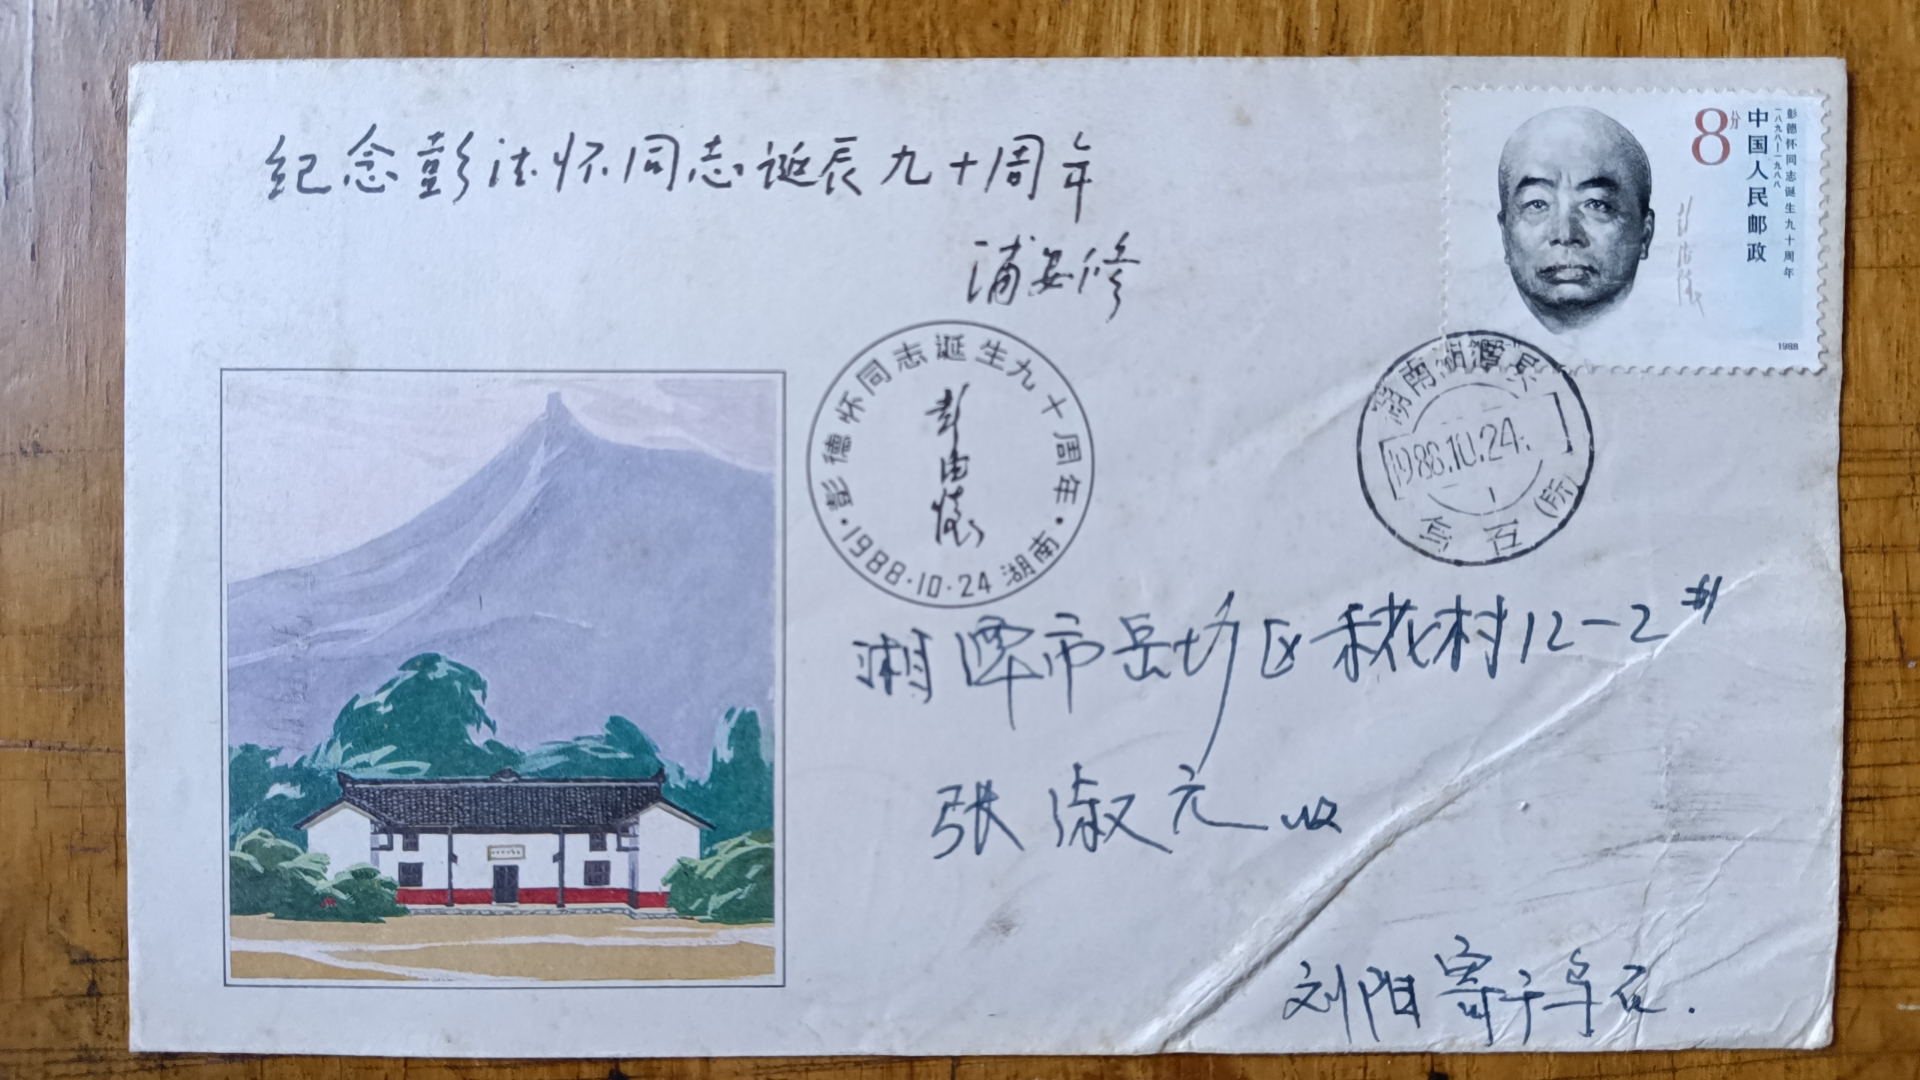 纪念彭德怀同志诞辰九十周年
浦安修
8分
中国人民邮政
彭德怀同志诞生九十周年
一八九八—一九八八
彭德怀
1988
彭德怀同志诞生九十周年
彭德怀
·1988·10·24 湖南·
湖南湘潭县
1988.10.24.
1
乌石(所)
湘潭市岳塘区禾花村12-2#
张淑元 收
刘阳寄于乌石.